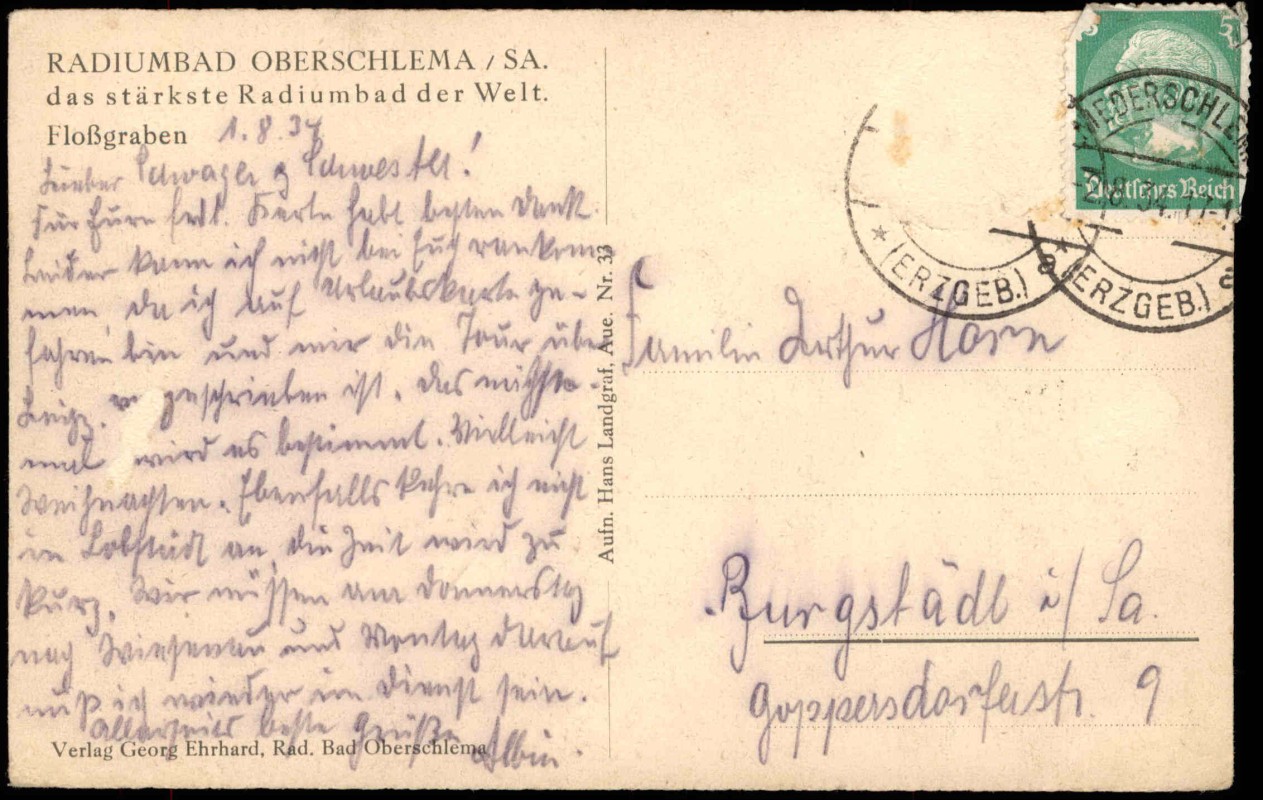 RADIUMBAD OBERSCHLEMA / SA.
das stärkste Radiumbad der Welt.
Floßgraben 1.8.34
Lieber Schwager & Schwester!
Für Eure frdl. Karte habt besten Dank.
Leider kann ich nicht bei Euch rankom=
men, da ich auf Urlaubskarte ge=
fahren bin und mir die Tour über
Leipz. geschrieben ist. Das nächste=
mal wird es bestimmt. Vielleicht
Weihnachten. Ebenfalls kehre ich nicht
in Lobstädt an, die Zeit wird zu
kurz. Wir müssen am Donnerstag
nach und Montag darauf
muß ich wieder im Dienst sein.
Allerseits beste Grüße Albin.
Verlag Georg Ehrhard, Rad. Bad Oberschlema
Aufn. Hans Landgraf, Aue. Nr. 33
5
Deutsches Reich
NIEDERSCHLEM
2.8.34.17-1
* (ERZGEB.) a
* (ERZGEB.) a
Familie Arthur Horn
Burgstädt i/ Sa.
Göppersdorferstr. 9